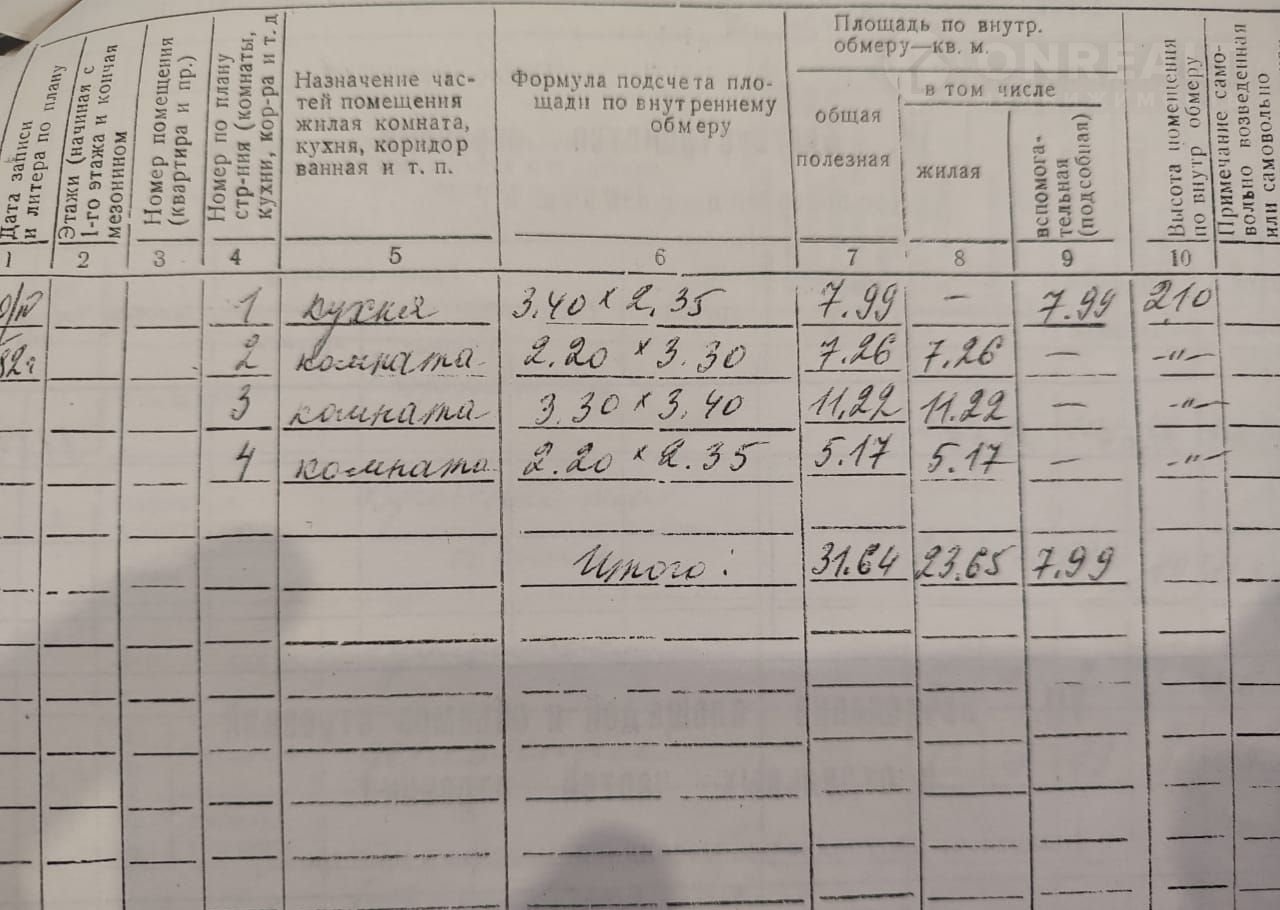 Дата записи
и литера по плану
Этажи (начиная с
1-го этажа и кончая
мезонином
Номер помещения
(квартира и пр.)
Номер по плану
стр-ния (комнаты,
кухни, кор-ра и т. д
Назначение час-
тей помещения
жилая комната,
кухня, коридор
ванная и т. п.
Формула подсчета пло-
щади по внутреннему
обмеру
Площадь по внутр.
обмеру—кв. м.
общая
полезная
в том числе
жилая
вспомога-
тельная
(подсобная)
Высота помещения
по внутр обмеру
Примечание само-
вольно возведенная
или самовольно
ONREA
1 2 3 4 5 6 7 8 9 10
1 кухня 3.40 × 2.35 7.99 — 7.99 2,10
2 комната 2.20 × 3.30 7.26 7.26 — -"-
3 комната 3.30 × 3.40 11,22 11.22 — -"-
4 комната 2.20 × 2.35 5.17 5.17 — -"-
Итого: 31.64 23.65 7.99